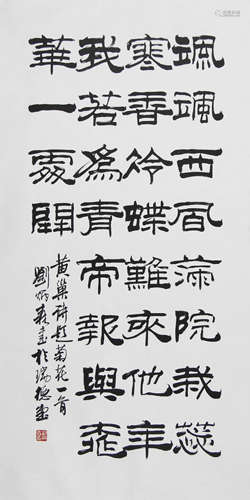 颯颯西風滿院栽蕊
寒香冷蝶難來他年
我若為青帝報與桃
華一處開
黃巢詩題菊花一首
劉炳森書於瑞德堂